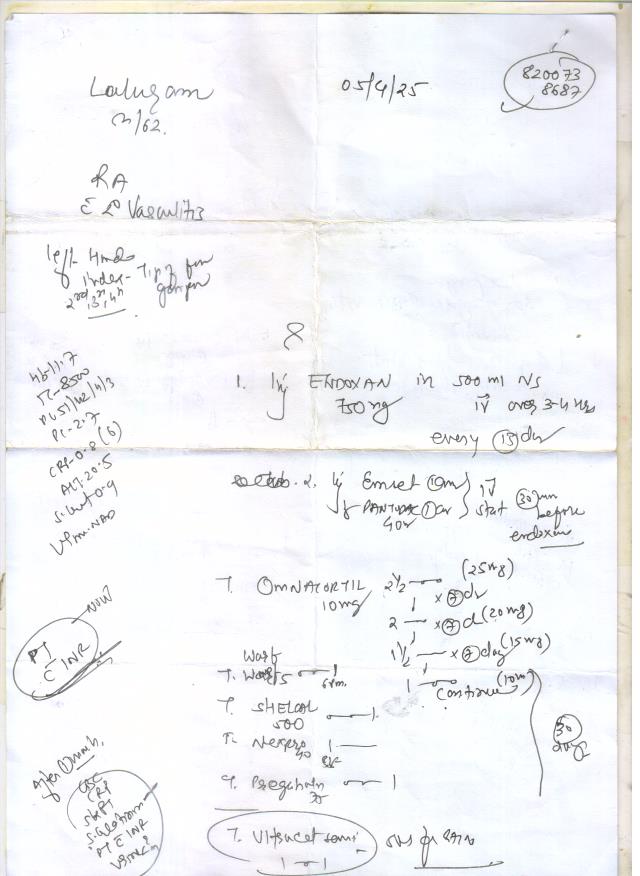 Laluram
05/4/25
820073
8687
M/62.
RA
c̄ L Vasculitis
left Hand
index - Tip of fingers
2nd, 3rd, 4th gangrene
Hb-11.7
TC-8500
P1-2.7
CRP-0.8 (6)
ALT-20.5
S.Creat-0.9
Urine-NAD
1. Inj ENDOXAN in 500 ml NS
750mg IV over 3-4 Hrs
every 15 days
2. Inj Emset 1 amp
Inj PANTODAC 1 amp
40
IV
stat 30 min
before
endoxan
T. OMNACORTIL 2½ (25mg)
10mg
x 7 d
2 x 7 d (20mg)
1½ x 7 day (15mg)
1 continue (10mg)
NOW
PT
c̄ INR
Warf
T. Warf 5 6 pm.
T. SHELCAL 1
500
T. Nexpro 1
40 BBF
T. Pregabalin 1
30
days
After 1 month
CBC
CRP
SGPT
S.Creatinine
PT c̄ INR
T. Ultracet semi SOS for PAIN
1 - 1